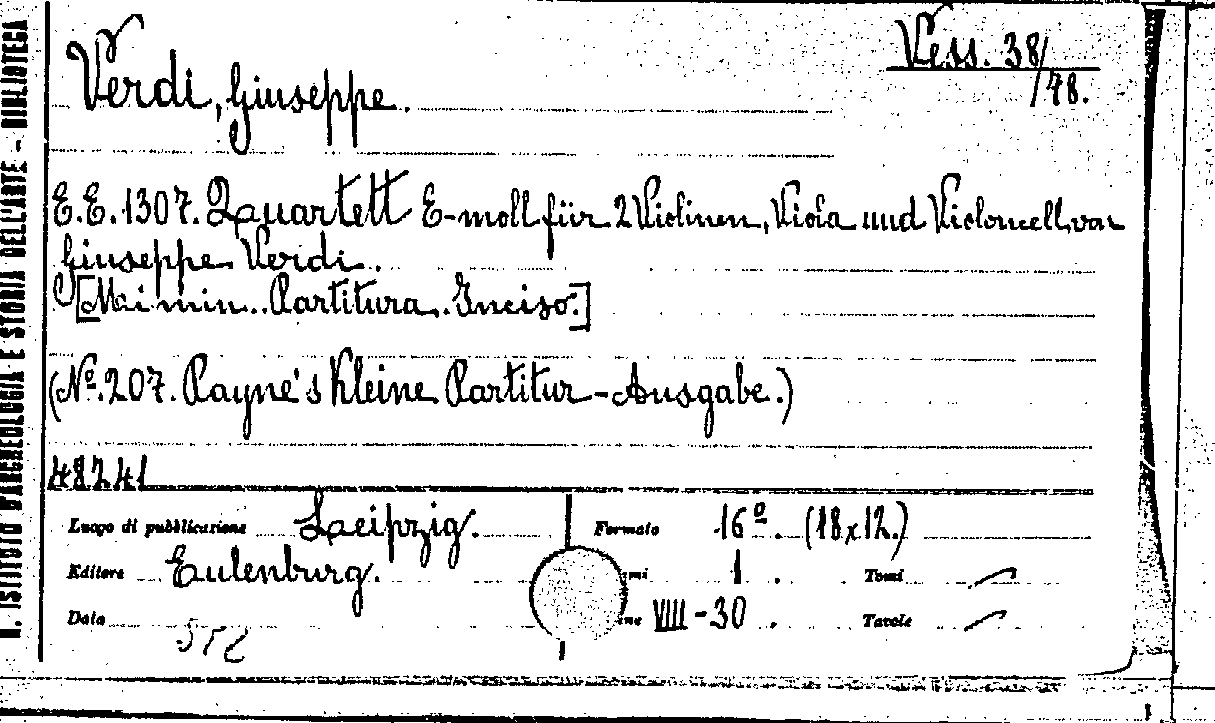 R. ISTITUTO D'ARCHEOLOGIA E STORIA DELL'ARTE - BIBLIOTECA
Verdi, Giuseppe.
Vess. 38/
/48.
E.E. 1307. Quartett E-moll für 2 Violinen, Viola und Violoncell von
Giuseppe Verdi.
[Mai min. Partitura. Inciso.]
(Nº. 207. Payne's Kleine Partitur-Ausgabe.)
48241
Luogo di pubblicazione Leipzig.
Formato 16º. (18x12.)
Editore Eulenburg.
mi 1.
Tomi
Data
me VIII-30.
Tavole